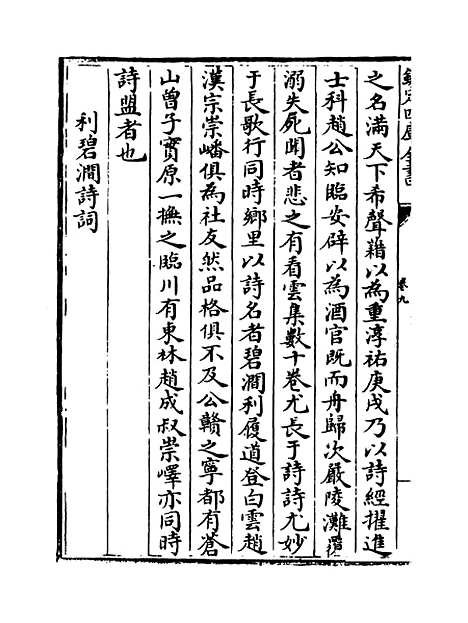 欽定四庫全書
卷九
之名滿天下希聲藉以為重淳祐庚戌乃以詩經擢進
士科趙公知臨安辟以為酒官既而舟歸次嚴陵灘覆
溺失死聞者悲之有看雲集數十卷尤長于詩詩尤妙
于長歌行同時鄉里以詩名者碧澗利履道登白雲趙
漢宗崇嶓俱為社友然品格俱不及公贛之寧都有蒼
山曾子實原一撫之臨川有東林趙成叔崇嶧亦同時
詩盟者也
利碧澗詩詞